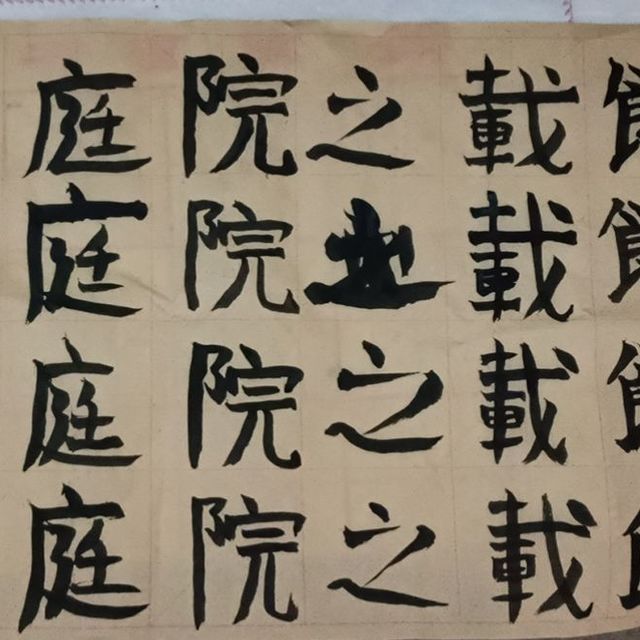 庭院之載
庭院載
庭院之載
庭院之載